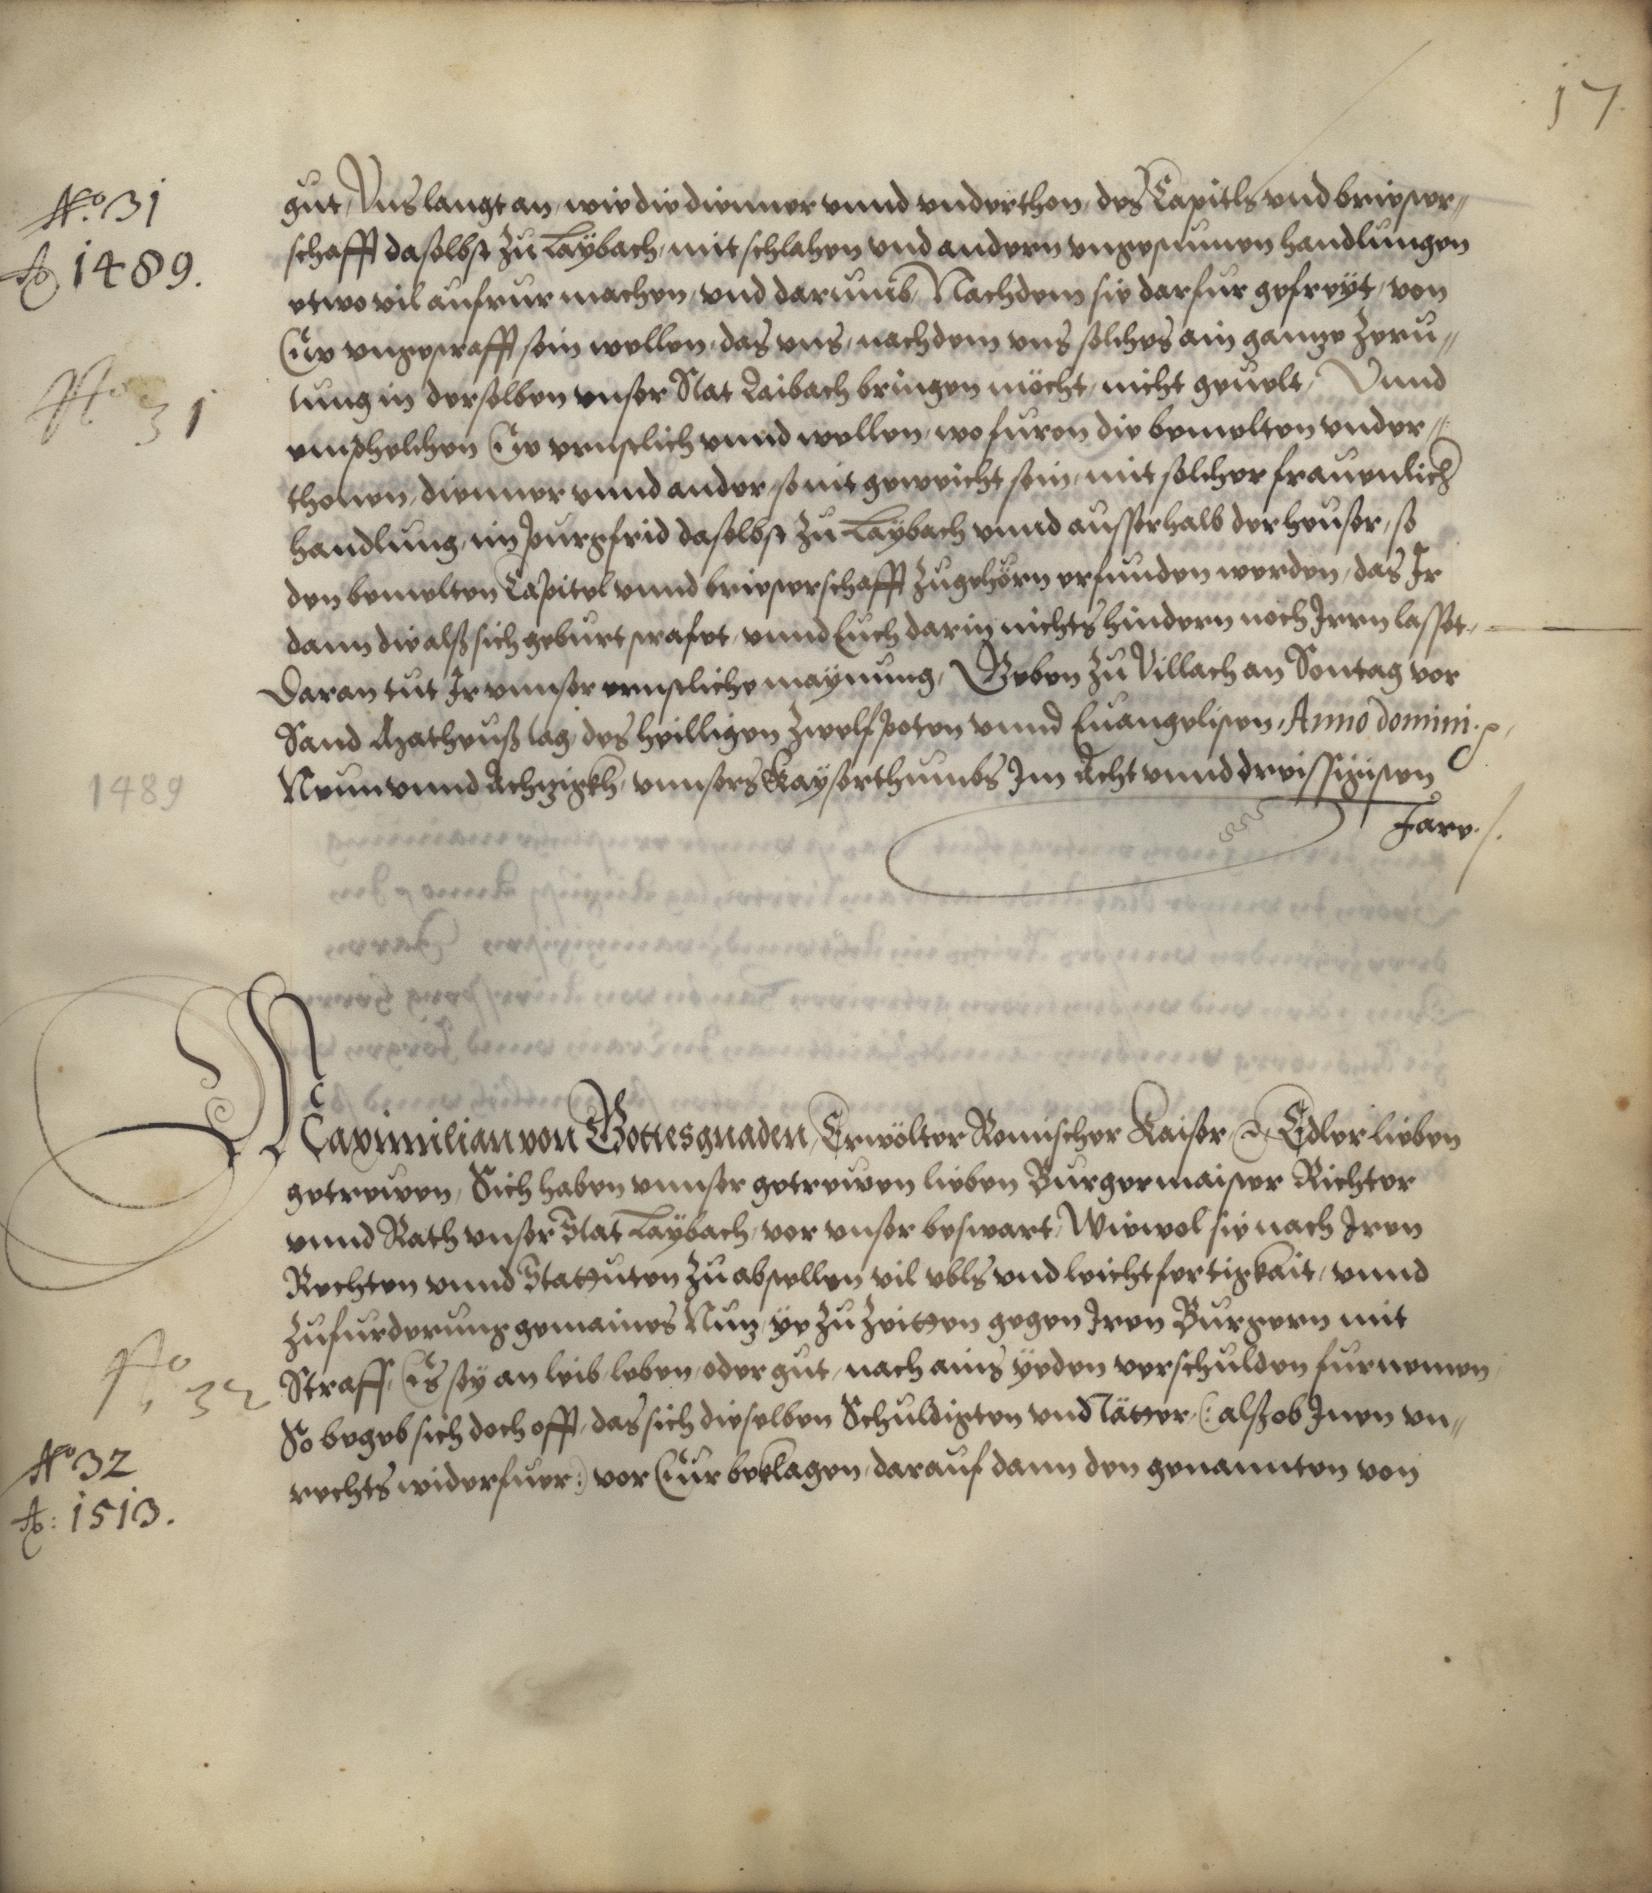 17.
No. 31
Ao 1489.
No 31
gut, Vns langt an, wie die dienner vnnd vnderthon, des Capitls vnd briester¬
schafft daselbst zu Laybach, mit schlahen vnd andern vngestumen handlungen
etwo vil aufrur machen, vnd darumb, Nachdem sie darfur gefreyt, von
Eŭe vngestrafft sein wellen, das vns, nachdem vns solches ain gannze Zeru¬
tung in derselben vnser Stat Laibach bringen möcht, nicht geuelt, Vnnd
emphelchen Eŭe ernstlich vnnd wellen, wo furon die bemelten vnder¬
thonen, dienner vnnd ander, so nit geweicht sein, mit solcher frauenlich
handlung, im purgfrid daselbst zu Laybach vnnd ausserhalb der heuser, so
den bemelten Capitel vnnd briesterschafft zugehörn erfunden werden, das Ir
dann die alß sich geburt strafet, vnnd Euch darin nichts hindern noch Irrn lasset,
Daran tut Ir vnnser ernstliche maynung, Geben zu Villach an Sontag vor
Sand Matheuß tag, des heilligen Zwelfpoten vnnd Euangelisten, Anno domini.
Neun vnnd Achzigkh, vnnsers Kayserthumbs Im Acht vnnd dreissigisten
Jare.
1489
Maximilian von Gottes gnaden, Erwölter Romischer Kaiser, Edler lieben
getrewen, Sich haben vnnser getrewen lieben Burgermaister Richter
vnnd Rath vnser Stat Laybach, vor vnser beswart, Wiewol sie nach Iren
Rechten vnnd Stattuten zu abstellen vil vbls vnd leichtfertigkait, vnnd
zufurderung gemaines Nuz, ye zu Zeitten gegen Iren Burgern mit
Straff, Es sey an leib, leben, oder gut, nach ains yeden verschulden furnemen,
So begeb sich doch offt, das sich dieselben Schuldigten vnd Tätter, (: alß ob Inen vn¬
rechts widerfuer :) vor Eŭr beklagen, darauf dann den genannten von
No 32
No 32
Ao: 1513.